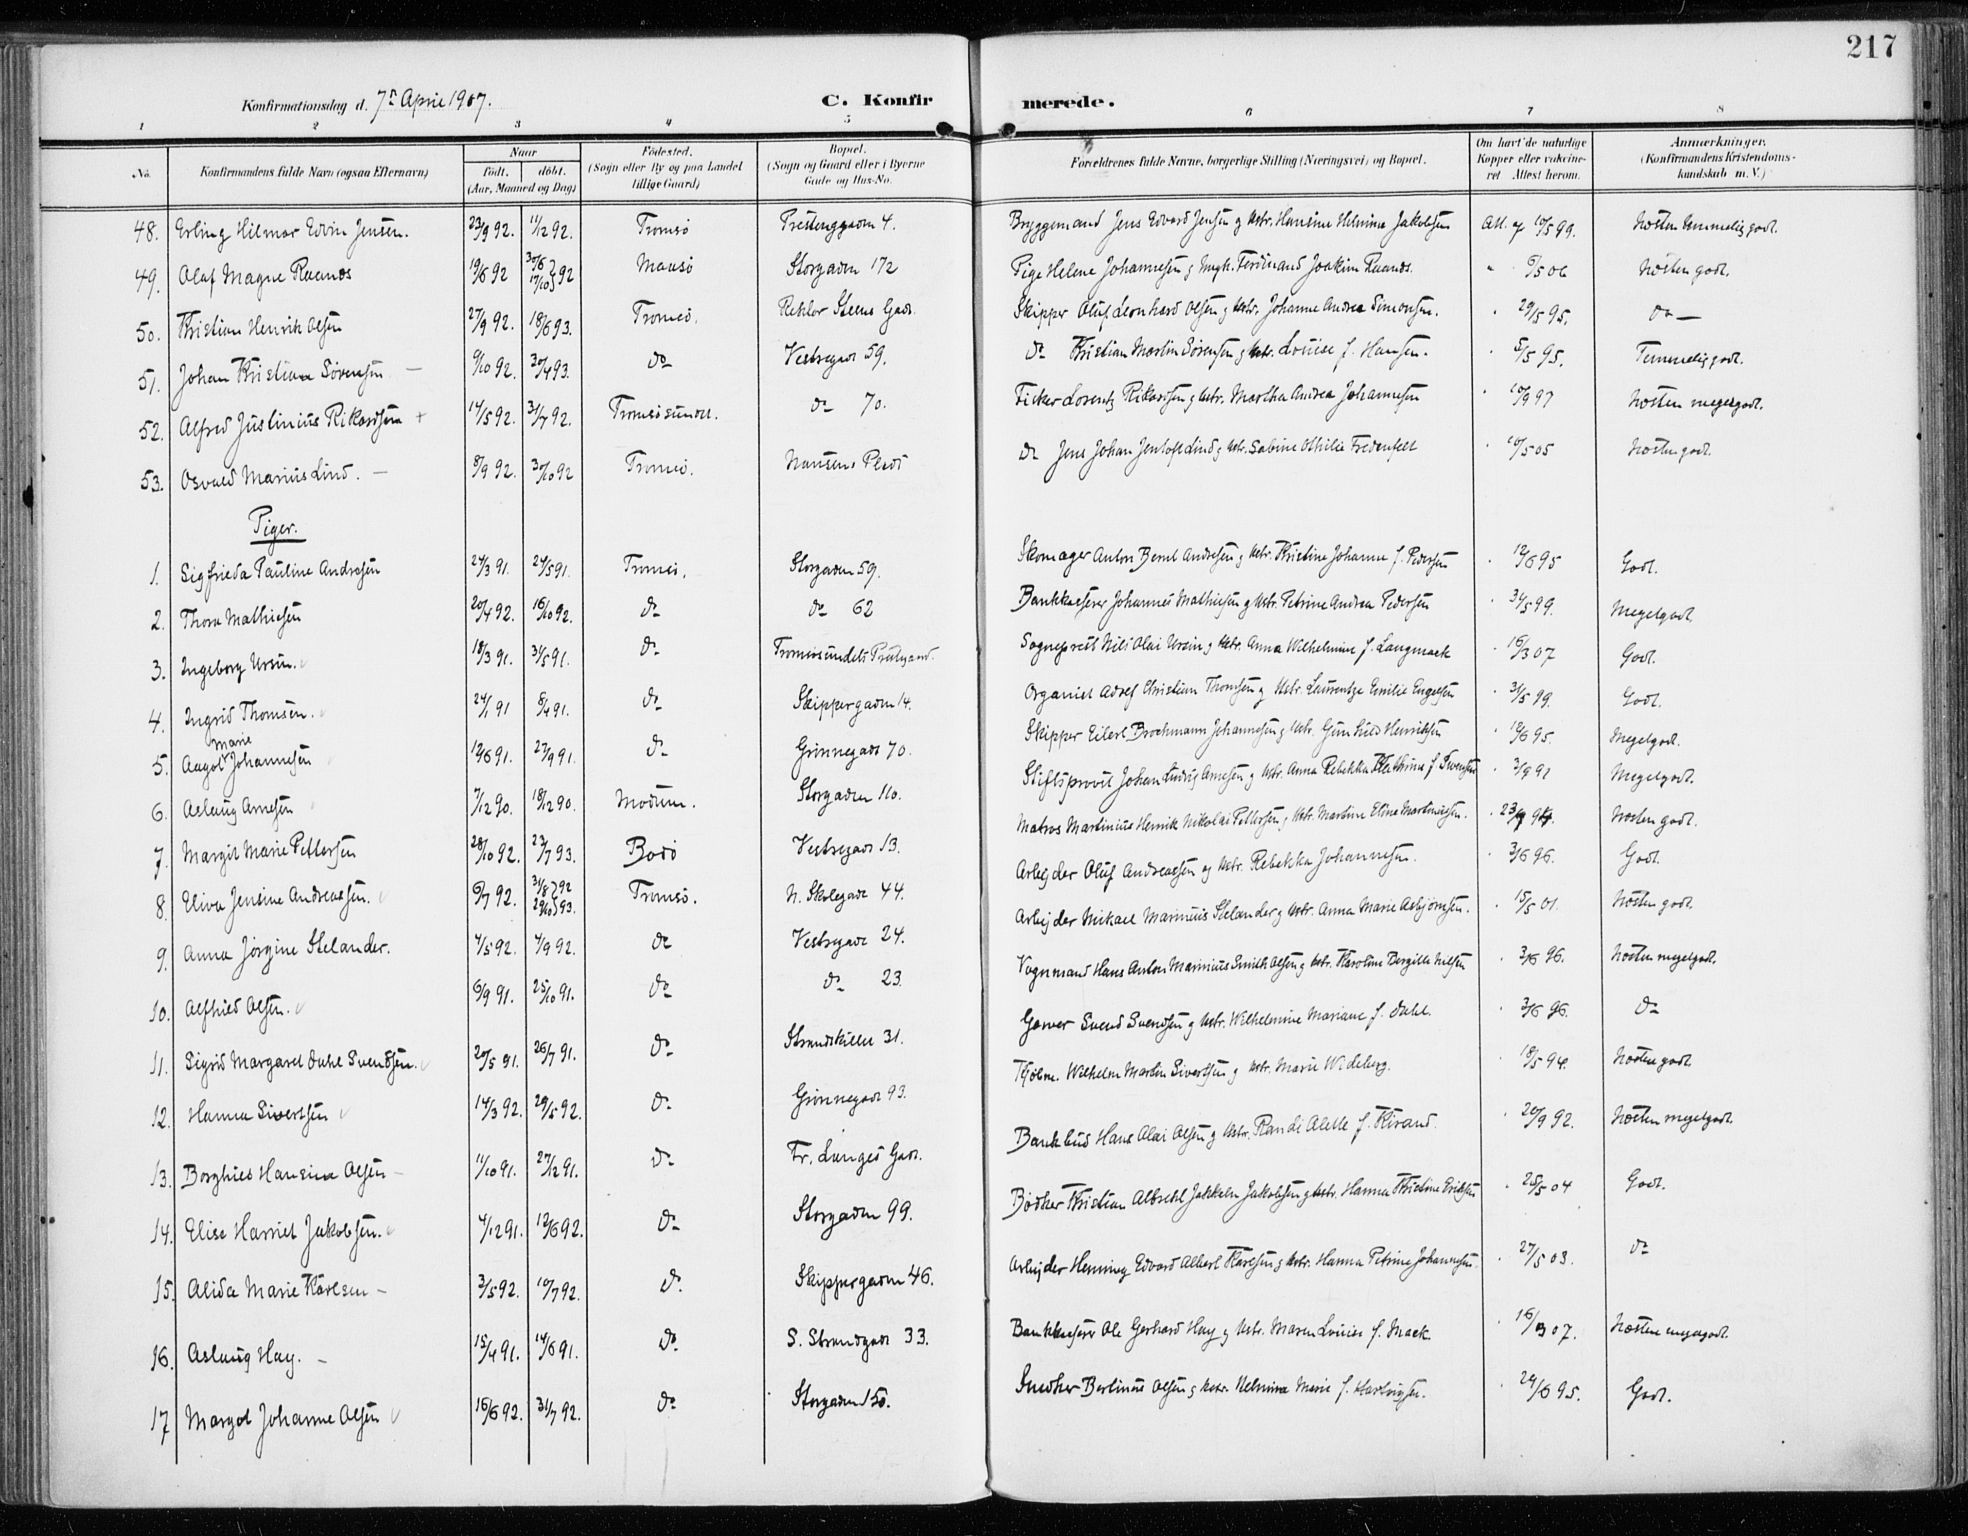 217
Konfirmationsdag d. 7de April 1907. C. Konfirmerede.
1 2 3 4 5 6 7 8
No. Konfirmandens fulde Navn (ogsaa Efternavn) Naar født. døbt. (Aar, Maaned og Dag) Fødested. (Sogn eller By og paa Landet tillige Gaard) Bopæl. (Sogn og Gaard eller i Byerne Gade og Hus-No. Forældrenes fulde Navne, borgerlige Stilling (Næringsvei) og Bopæl. Om havt de naturlige Kopper eller vakcineret Attest herom. Anmærkninger. (Konfirmandens Kristendomskundskab m. V.)
48. Erling Hilmar Edvin Jensen. 23/9 92. 11/12 92. Tromsö 4. Bryggemand Jens Edvard Jensen og Hstr. Hansine Helmine Jakobsen Att. af 10/5 99. Næsten temmelig godt.
49. Olaf Magne Raanes 19/6 92 30/6 17/10 } 92 Maasö Storgaden 172 Pige Helene Johannesen og Ungk. Ferdinand Joakim Raanes. " 5/5 06 Næsten godt.
50. Kristian Henrik Olsen 27/9 92. 18/6 93. Tromsö. Rektor Steens Gade. Skipper Oluf Leonhard Olsen og Hstr. Johanne Andrea Simonsen. " 29/5 95. do —
51. Johan Kristian Sörensen — 9/10 92. 30/4 93. do Vestregade 59. do Kristian Martin Sörensen og Hstr. Louise f. Hansen. " 5/5 95. Temmelig godt.
52. Alfred Justinius Rikardsen + 14/5 92. 31/7 92. Tromsösundet. do 70. Fisker Lorentz Rikardsen og Hstr. Martha Andrea Johannesen " 10/9 97 Næsten meget godt.
53. Osvald Marius Lind. — 8/9 92. 30/10 92 Tromsö. Hansens Plads do Jens Johan Jentoft Lind og Hstr. Sabine Othilie Fredenfelt " 10/5 05 Næsten godt.
Piger.
1. Sigfrieda Pauline Andresen 24/3 91. 24/5 91. Tromsö. Storgaden 59. Skomager Anton Bernt Andresen og Hstr. Kristine Johanne f. Pedersen " 12/6 95 Godt.
2. Thora Mathiesen 20/4 92. 16/10 92. do do 62 Bankkasserer Johannes Mathiesen og Hstr. Petrine Andrea Pedersen " 31/5 99. Meget godt.
3. Ingeborg Ursin. 18/3 91. 31/5 91. do Tromsösundets Prestgaard. Sogneprest Nils Olai Ursin og Hstr. Anna Wilhelmine f. Langmack " 15/3 07 Godt.
4. Ingrid Thomsen. 24/1 91 8/4 91. do Skippergaden 14. Organist Adolf Christian Thomsen og Hstr. Laurentze Emilie Engelsen " 31/5 99. Godt.
5. Aagot Marie Johannesen 12/6 91. 27/9 91. do Grönnegade 70. Skipper Eilert Brochmann Johannesen og Hstr. Gunhild Henriksen " 19/6 95. Meget godt.
6. Aslaug Arnesen 7/12 90. 18/12 90. Modum. Storgaden 110. Stiftsprovst Johan Ludvig Arnesen og Hstr. Anna Rebekka Kathrine f. Svensen " 3/9 91 Meget godt.
7. Margit Marie Pettersen 28/10 92. 23/7 93. Bodö Vestregade 13. Matros Martinius Henrik Nikolai Pettersen og Hstr. Martine Eline Martinussen. " Næsten godt.
8. Eliva Jensine Andreassen. 6/7 92. 31/8 } 92 29/10 } 93. Tromsö. N. Skolegade 44. Arbejder Oluf Andreassen og Hstr. Rebekka Johannesen. " 3/6 96. Godt.
9. Anna Jörgine Stelander. 4/5 92. 4/9 92. do Vestregade 24. Arbejder Mikael Marinius Stelander og Hstr. Anna Marie Asbjörnsen. " 15/5 01. Næsten godt.
10. Alfhild Olsen. 6/9 91. 25/10 91. do do 23. Vognmand Hans Anton Marinius Smith Olsen og Hstr. Karoline Bergitte Nilsen " 3/6 96. Næsten meget godt.
11. Sigrid Margaret Dahl Svendsen. 20/5 91. 26/7 91. do Strandskillet 31. Garver Svend Svendsen og Hstr. Wilhelmine Mariane f. Dahl. " 3/6 96. do
12. Hanna Sivertsen 14/3 92. 29/5 92. do Grönnegade 93. Tjölm. Wilhelm Martin Sivertsen og Hstr. Marie Wideberg. " 18/5 94. Næsten godt
13. Borghild Hansine Olsen — 11/10 91. 27/12 91. do Fr. Langes Gade. Bankbud Hans Olai Olsen og Hstr. Randi Alette f. Strand. " 20/9 92. Næsten meget godt.
14. Elise Harriet Jakobsen. 4/12 91. 12/6 92. do Storgaden 99. Bödker Kristian Albrekt Jakobsen og Hstr. Hanna Kristine Eriksen " 25/5 04 Godt.
15. Alida Marie Karlsen — 3/5 92. 10/7 92. do Skippergaden 46. Arbejder Henning Edvard Albert Karlsen og Hstr. Hanna Petrine Johannesen. " 27/5 03. do
16. Aslaug Hay. — 15/4 91. 14/6 91. do S. Strandgade 33. Bankkasserer Ole Gerhard Hay og Hstr. Maren Lovise f. Mack. " 16/3 07. Næsten meget godt.
17 Margot Johanne Olsen 16/6 92. 31/7 92. do Storgaden 150. Snedker Berlinus Olsen og Hstr. Helmina Marie f. Hartvigsen. " 29/6 95. Godt.